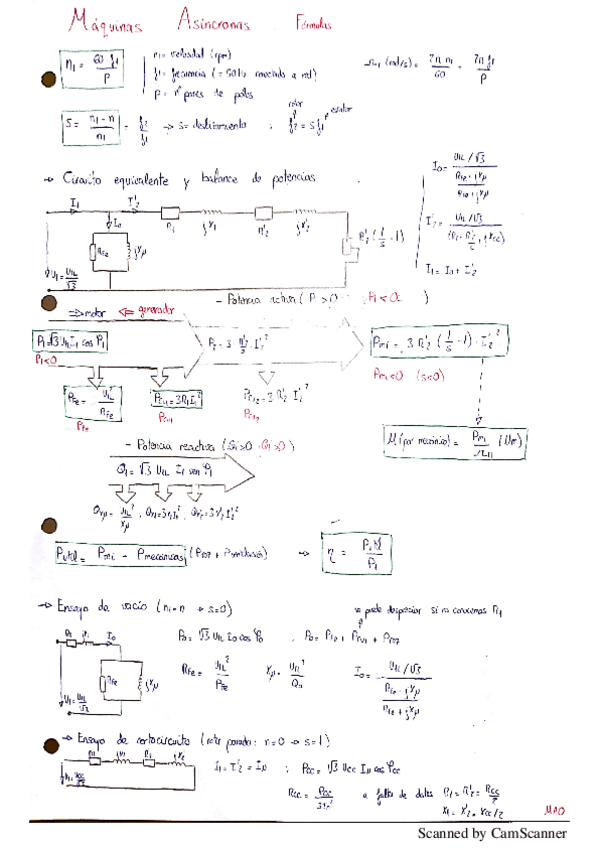 Máquinas Asíncronas Fórmulas
n₁ = 60 f₁ / P
n₁ = velocidad (rpm)
f₁ = frecuencia (= 50Hz conectado a red)
P = nº pares de polos
Ω₁ (rad/s) = 2π n₁ / 60 = 2π f₁ / P
S = n₁ - n / n₁ = f₂ / f₁ → s = deslizamiento ; f₂ = s f₁
rotor estator
→ Circuito equivalente y balance de potencias
I₁ I'₂ I₀
R₁ X₁ R'₂ X'₂ R'₂ (1/s - 1)
R_Fe jXμ
U₁ = U₁L / √3
I₀ = U₁L/√3 / (R_Fe · jXμ / R_Fe + jXμ)
I'₂ = U₁L/√3
I₁ = I₀ + I'₂
- Potencia activa (P₁>0 P₁<0 )
⇒ motor ⇐ generador
P₁ = √3 U₁L I₁ cos φ₁
P₁<0
Pmi = 3 R'₂ (1/s - 1) · I'₂²
Pmi<0 (s<0)
P_Fe = U₁L² / R_Fe
P_Fe
Pcu₁ = 3R₁I₁²
Pcu₁
Pcu₂ = 3 R'₂ · I'₂²
Pcu₂
M (par mecánico) = Pmi / Ω
- Potencia reactiva (Q₁>0 Q₁>0)
Q₁ = √3 U₁L I₁ sen φ₁
Qxμ = U₁L² / Xμ , Qx₁ = 3 X₁ I₁² , Qx'₂ = 3 X'₂ I'₂²
Pútil = Pmi - Pmecánicas → η = / P₁
→ Ensayo de vacío (n₁ = n → s=0)
se puede despreciar si no conocemos R₁
R₁ X₁ I₀
R_Fe jXμ
U₁ = U₁L / √3
P₀ = √3 U₁L I₀ cos φ₀ , P₀ = P_Fe + Pcu₁ +
R_Fe = U₁L² / P_Fe
Xμ = U₁L² / Q₀
I₀ = U₁L/√3 / (R_Fe · jXμ / R_Fe + jXμ)
→ Ensayo de cortocircuito (rotor parado: n=0 → s=1)
I₁ = I'₂ = I_N ; Pcc = √3 Ucc I_N cos φcc
Rcc = Pcc / 3I²
a falta de datos R₁ = R'₂ = Rcc / 2
X₁ = X'₂ = Xcc/2
Scanned by CamScanner